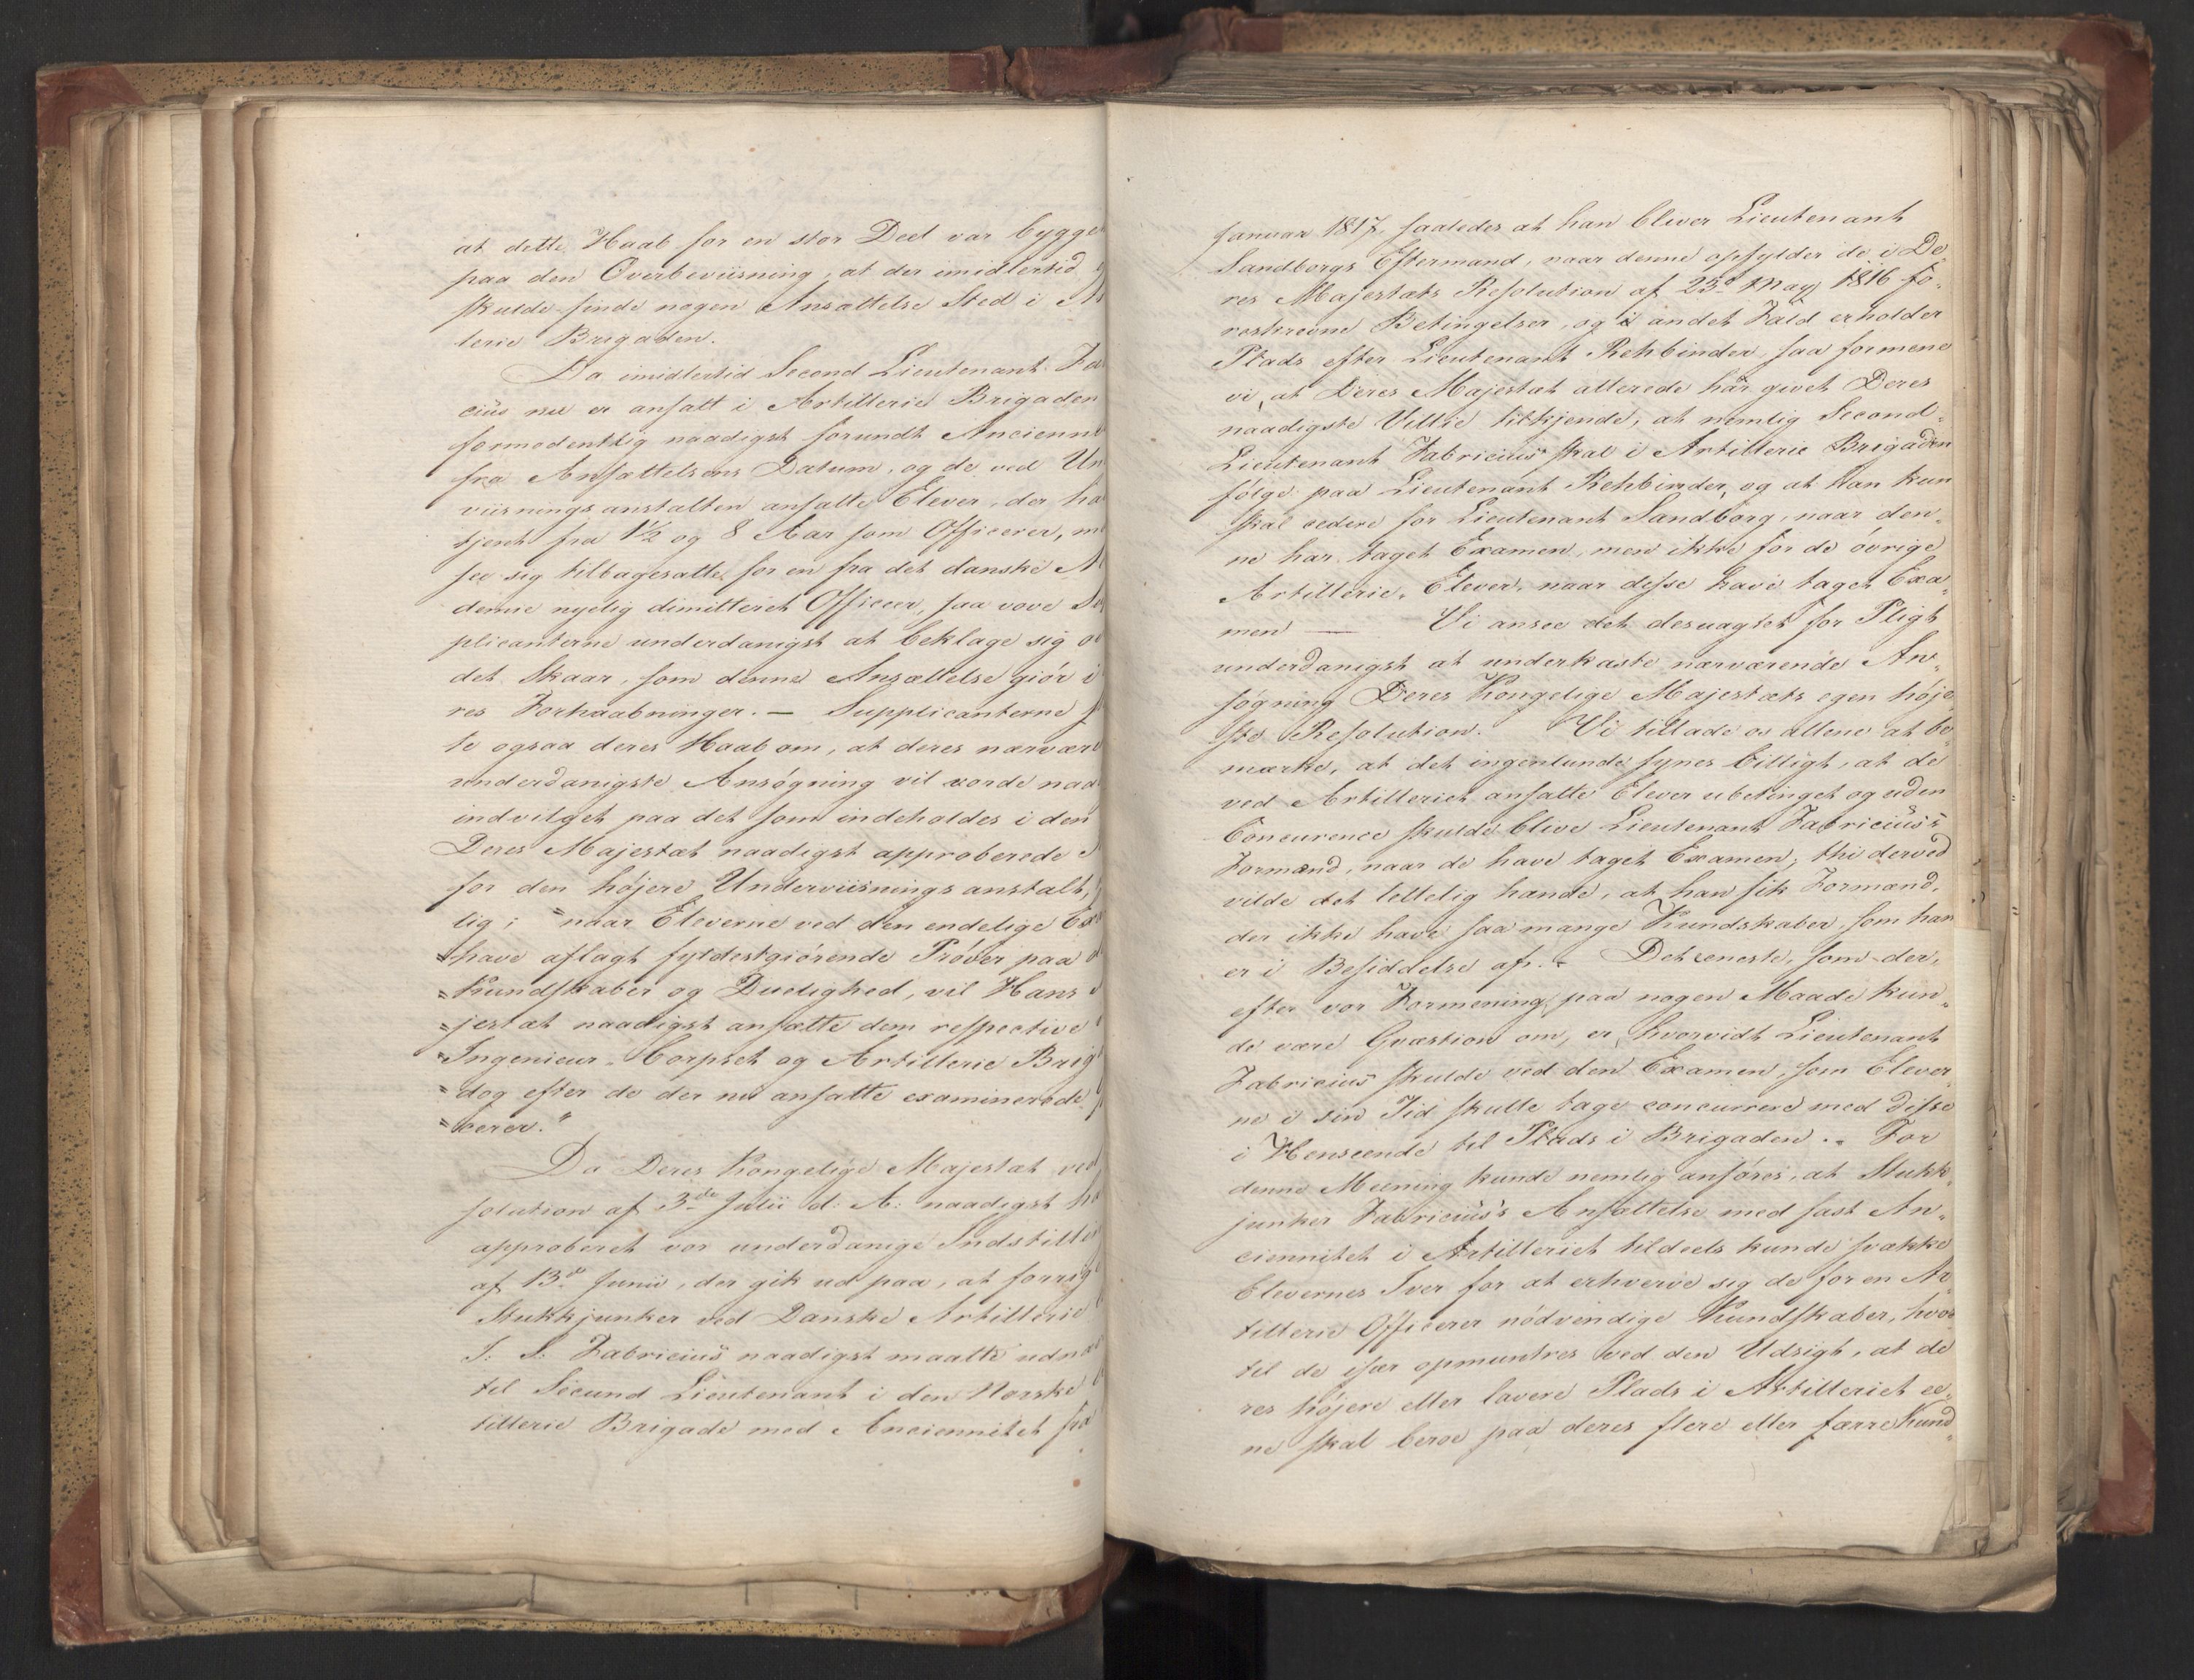 at dette Haab for en stor Deel var bygget
paa den Overbeviisning, at der imidlertid
skulde finde nogen Ansættelse Sted i
lerie Brigaden.
Da imidlertid Second Lieutenant Fa
cius nu er ansatt i Artillerie Brigaden
formedentlig naadigst forundt Ancienne
fra Ansættelsens Datum, og de ved Un
viisnings anstalten ansatte Elever, der ha
tjent fra 1½ og 8 Aar som Officerer, m
see sig tilbagesatte for en fra det danske A
demie nyelig dimitteret Officeer, saa vove
plicanterne underdanigst at beklage sig o
det Skaar, som denne Ansættelse giör i
res Forhaabninger. — Supplicanterne
te ogsaa deres Haab om, at deres nærvære
underdanigste Ansøgning vil vorde naa
indvilget paa det som indeholdes i den
Deres Majestæt naadigst approberede
for den højere Underviisnings anstalt,
lig; "naar Eleverne ved den endelige Ex
"have aflagt fyldestgiörende Pröver paa
"Kundskaber og Duelighed, vil Hans
"jestæt naadigst ansætte dem respective
"Ingenieur-Corpset og Artillerie Brig
"dog efter de der nu ansatte examinerede
"cerer."
Da Deres Kongelige Majestæt ved
solution af 3die Julii d: A: naadigst ha
approberet vor underdanige Indstilli
af 13de Junii, der gik ud paa, at forrig
Stukkjunker ved Danske Artillerie
S: Fabricius naadigst maatte udnæ
til Secund Lieutenant i den Norske
tillerie Brigade med Anciennitet fra
Januar 1817, saaledes at han bliver Lieutenant
Sandborgs Eftermand, naar denne opfylder de i De-
res Majestæts Resolution af 23d May 1816 fo-
reskrevne Betingelser, og i andet Fald erholder
Plads efter Lieutenant Rehbinder, saa formene
vi, at Deres Majestæt allerede har givet Deres
naadigste Villie tilkjende, at nemlig Second-
Lieutenant Fabricius skal i Artillerie Brigaden
følge paa Lieutenant Rehbinder, og at han kun
skal cedere for Lieutenant Sandborg, naar den-
ne har taget Examen, men ikke for de övrige
Artillerie-Elever, naar disse have taget Exa-
men — Vi ansee det desuagtet for Pligt
underdanigst at underkaste nærværende An-
søgning Deres Kongelige Majestæts egen höje-
ste Resolution. Vi tillade os allene at be-
mærke, at det ingenlunde synes billigt, at de
ved Artilleriet ansatte Elever ubetinget og uden
Concurence skulde blive Lieutenant Fabricius's
Formænd, naar de have taget Examen; thi derved
vilde det lettelig hænde, at han fik Formænd,
der ikke have saa mange Kundskaber, som han
er i Besiddelse af. - Det eneste, som der,
efter vor Formening, paa nogen Maade kun-
de være Qvæstion om, er, hvorvidt Lieutenant
Fabricius skulde ved den Examen, som Elever-
ne i sin Tid skulle tage concurrere med disse
i Henseende til Plads i Brigaden. - For
denne Meening kunde nemlig anføres, at Stukk-
junker Fabricius's Ansættelse med fast An-
ciennitet i Artilleriet tildeels kunde svække
Elevernes Iver for at erhverve sig de for en Ar
tillerie Officerer nödvendige Kundskaber, hvor
til de især opmuntres ved den Udsigt, at de
res højere eller lavere Plads i Artilleriet ee-
ne skal beroe paa deres flere eller færre Kund-